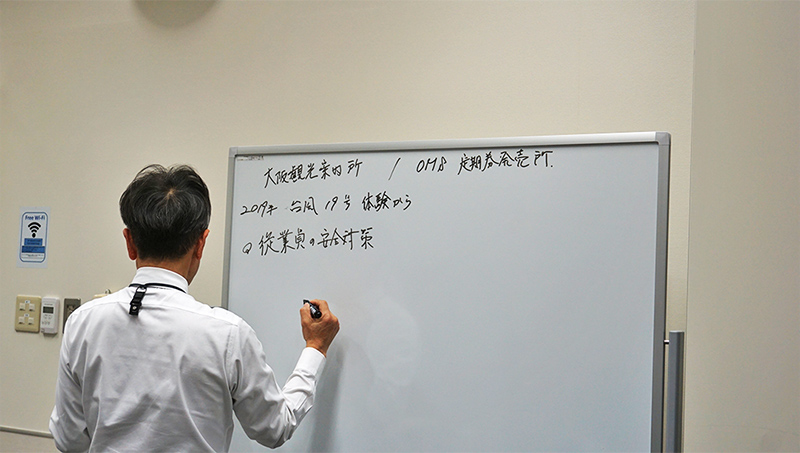 大阪観光案内所 / OMB 定期券発売所.
2019年 台風 19号 体験から
従業員の安全対策
Free Wi-Fi